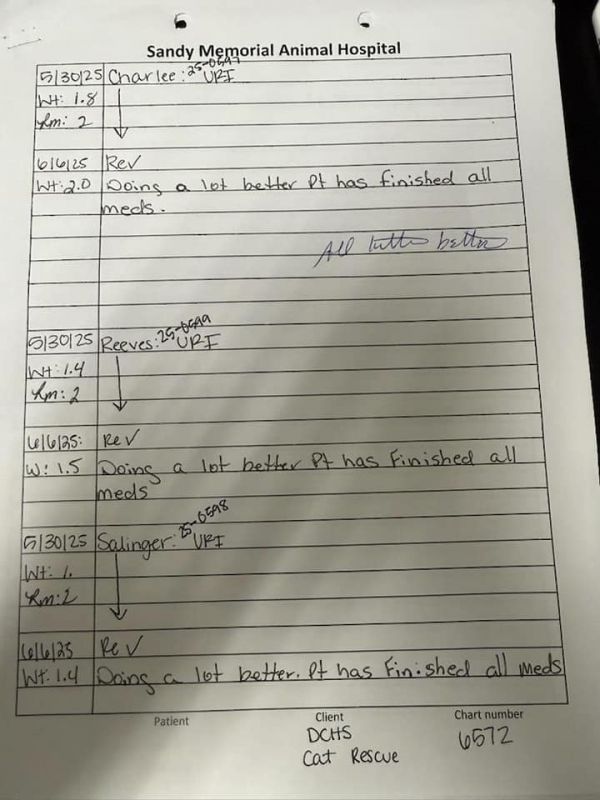 Sandy Memorial Animal Hospital
5/30/25 Charlee: 25-0597 URI
Wt: 1.8
Rm: 2
6/6/25 Rev
Wt: 2.0 Doing a lot better Pt has finished all
meds.
All better
5/30/25 Reeves: 25-0599 URI
Wt: 1.4
Rm: 2
6/6/25: Rev
W: 1.5 Doing a lot better Pt has Finished all
meds
5/30/25 Salinger: 25-0598 URI
Wt: 1.
Rm: 2
6/6/25 Rev
Wt. 1.4 Doing a lot better. Pt has Finished all meds
Patient Client Chart number
DCHS 6572
Cat Rescue